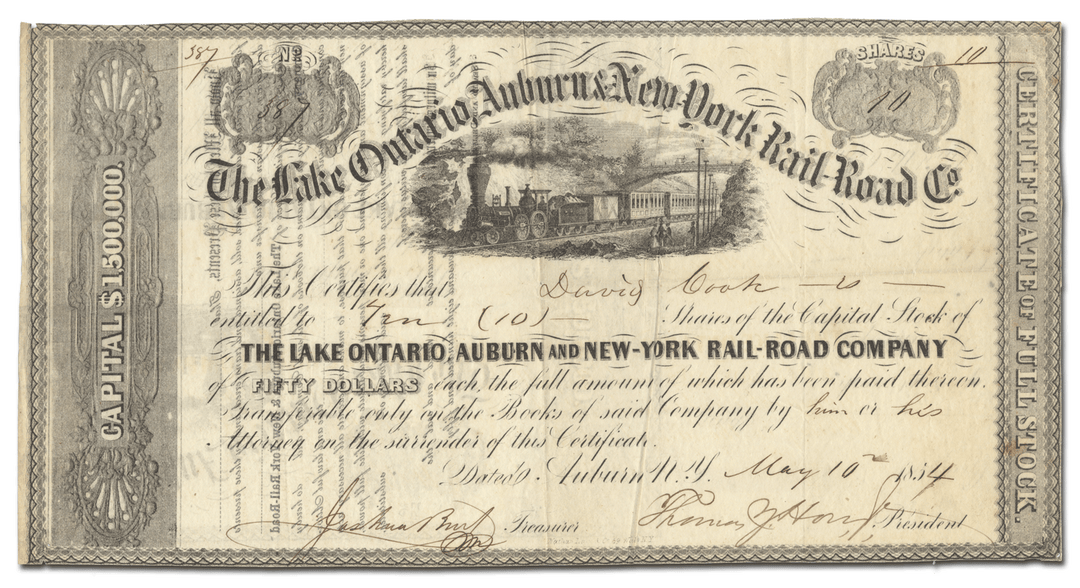 387
No
387
SHARES
10
10
The Lake Ontario, Auburn & New-York Rail-Road Co.
CAPITAL $1.500.000.
CERTIFICATE OF FULL STOCK.
This Certifies that David Cook is
entitled to Ten (10) Shares of the Capital Stock of
THE LAKE ONTARIO, AUBURN AND NEW-YORK RAIL-ROAD COMPANY
of FIFTY DOLLARS each, the full amount of which has been paid thereon.
Transferable only on the Books of said Company by him or his
Attorney on the surrender of this Certificate.
Dated Auburn N.Y. May 10 1854
Joshua Burt Treasurer Thomas Y. How Jr. President